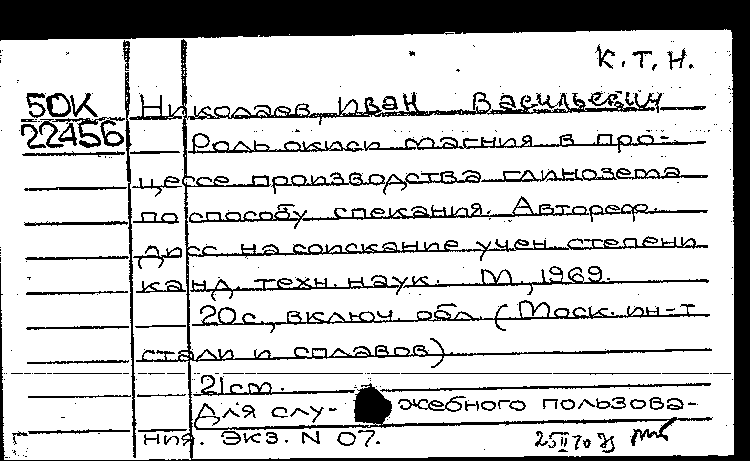 К.Т.Н.
50К Николаев, Иван Васильевич
22456 Роль окиси магния в про-
цессе производства глинозема
по способу спекания. Автореф.
дисс. на соискание учен. степени
канд. техн. наук. М., 1969.
20с., включ. обл. (Моск. ин-т
стали и сплавов)
21см.
Для слу- жебного пользова-
ния. Экз. N 07.